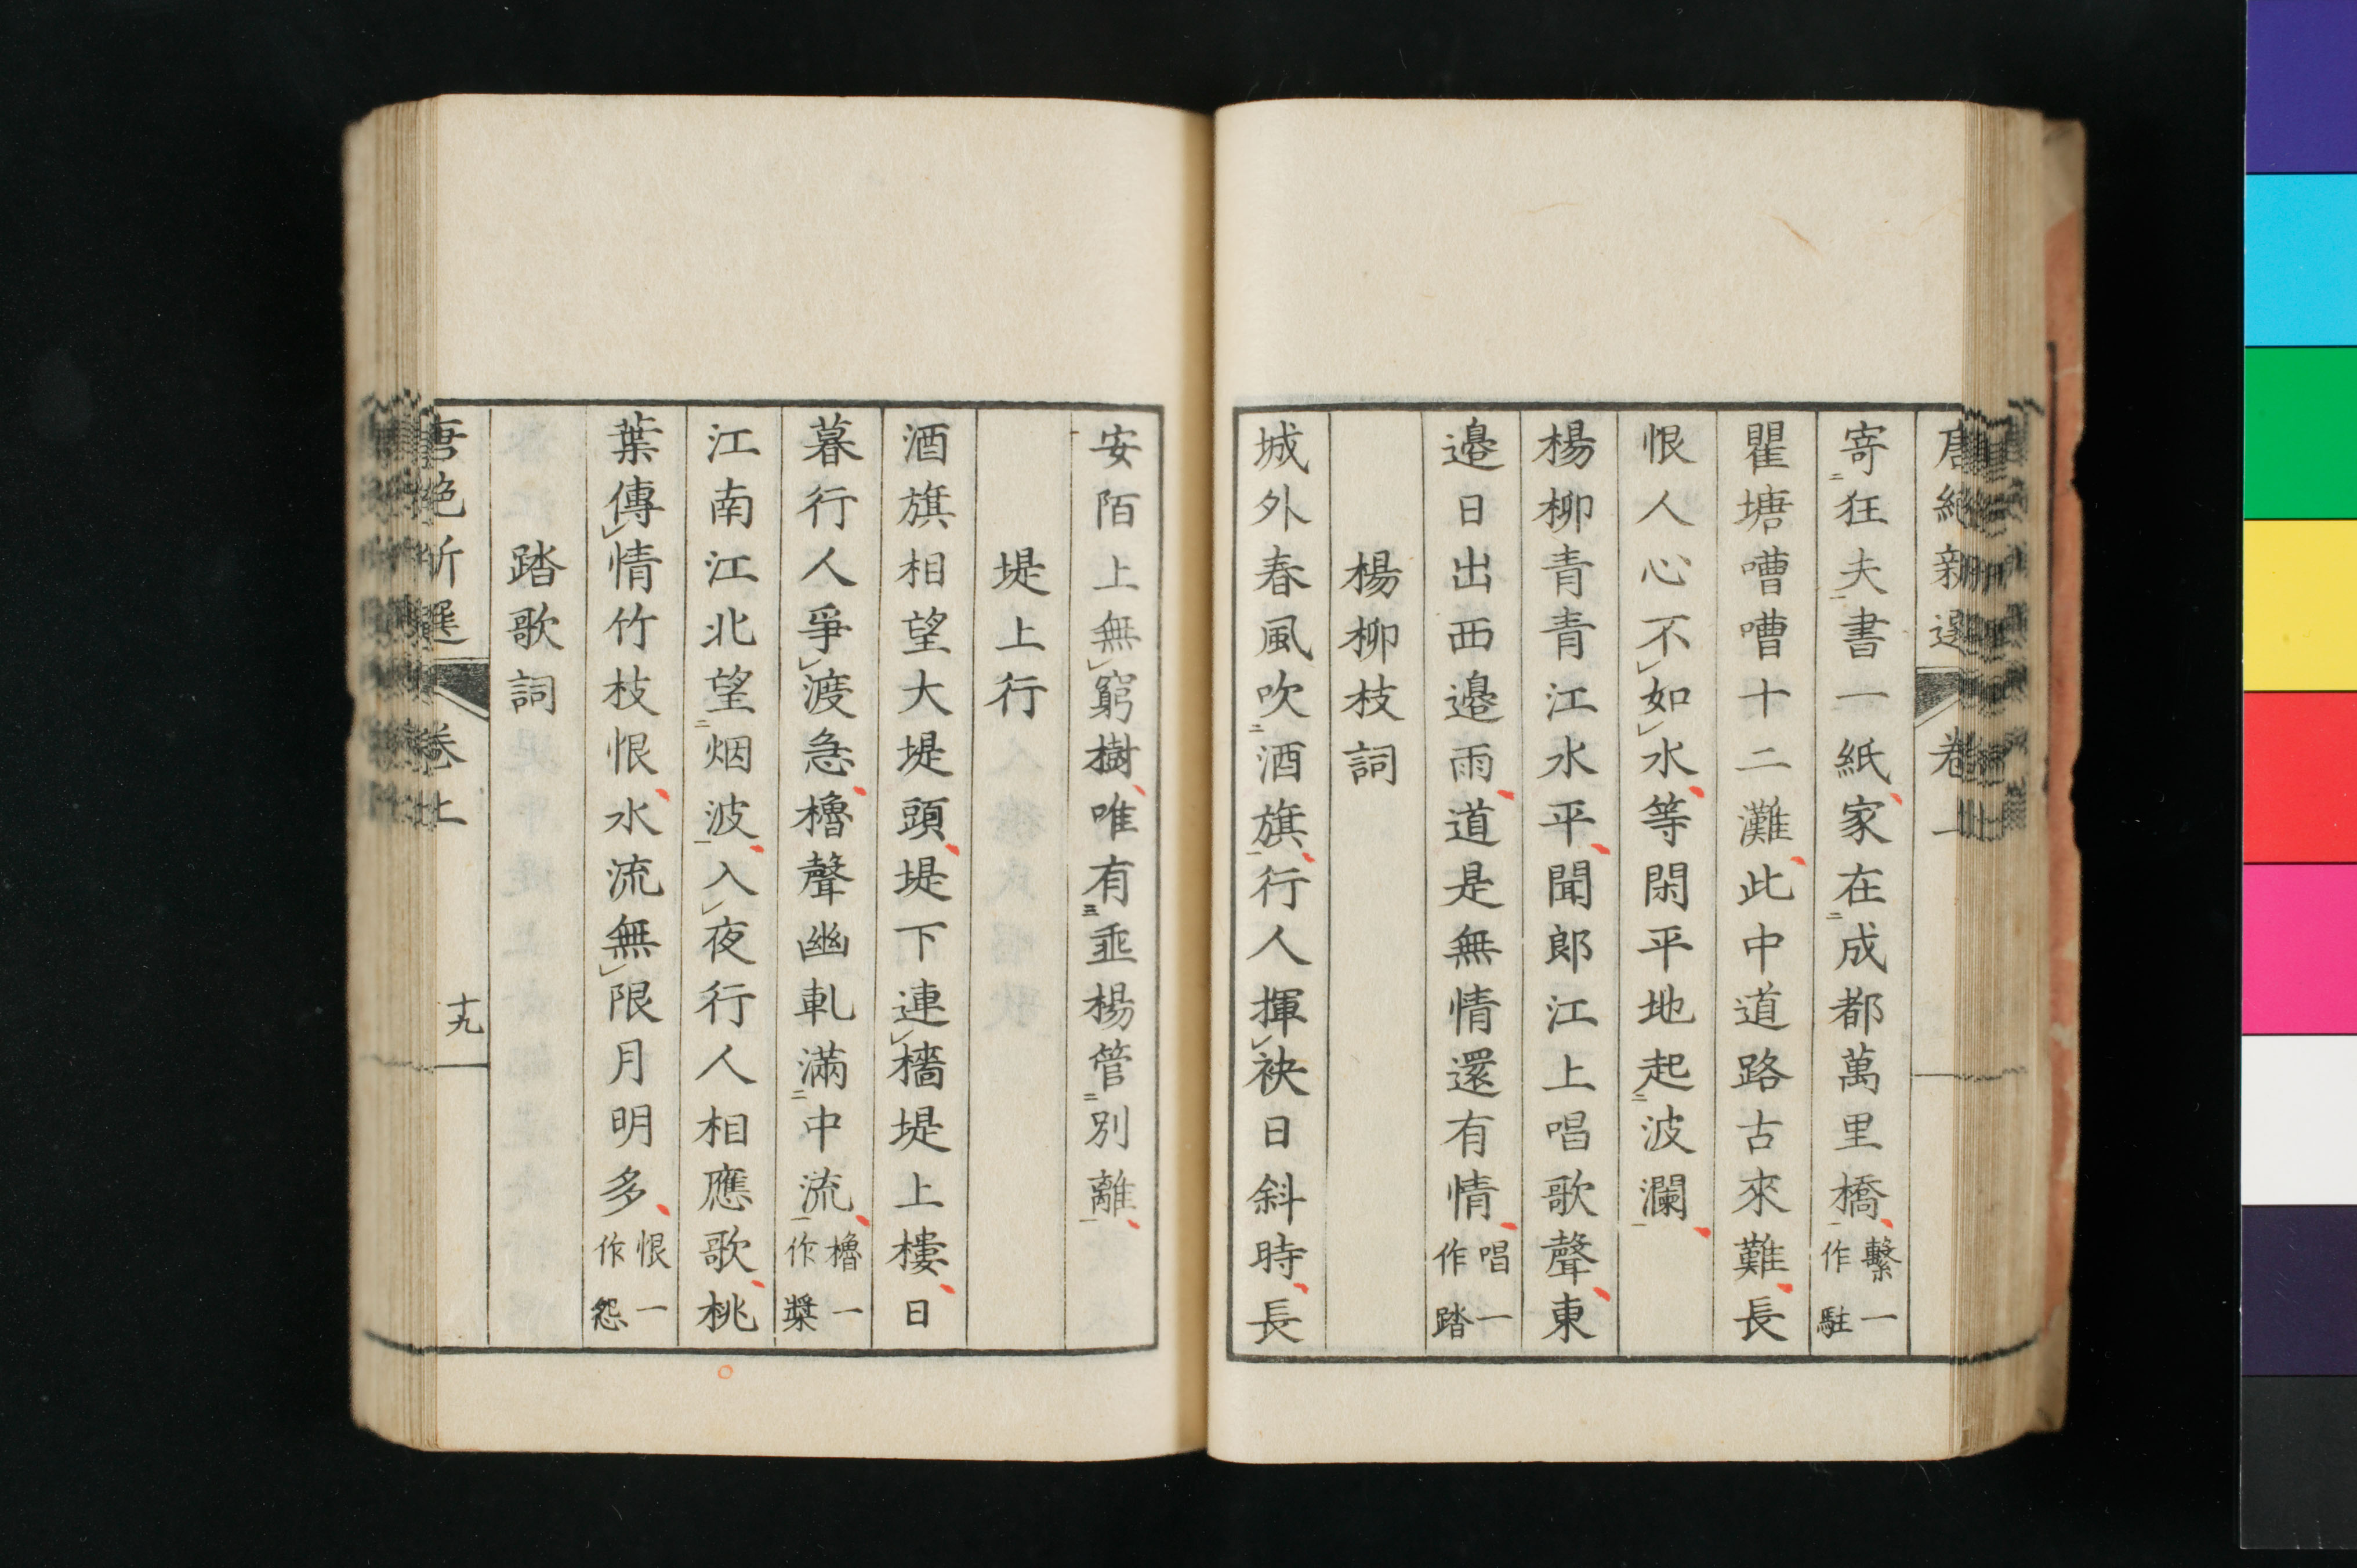 寄狂夫書一紙家在成都萬里橋繫一作駐
瞿塘嘈嘈十二灘此中道路古來難長
恨人心不如水等閑平地起波瀾
楊柳青青江水平聞郎江上唱歌聲東
邉日出西邉雨道是無情還有情唱一作踏
楊柳枝詞
城外春風吹酒旗行人揮袂日斜時長
安陌上無窮樹唯有埀楊管別離
堤上行
酒旗相望大堤頭堤下連檣堤上樓日
暮行人爭渡急櫓聲幽軋滿中流櫓一作槳
江南江北望烟波入夜行人相應歌桃
葉傳情竹枝恨水流無限月明多恨一作怨
踏歌詞
唐絶新選 卷上 十九